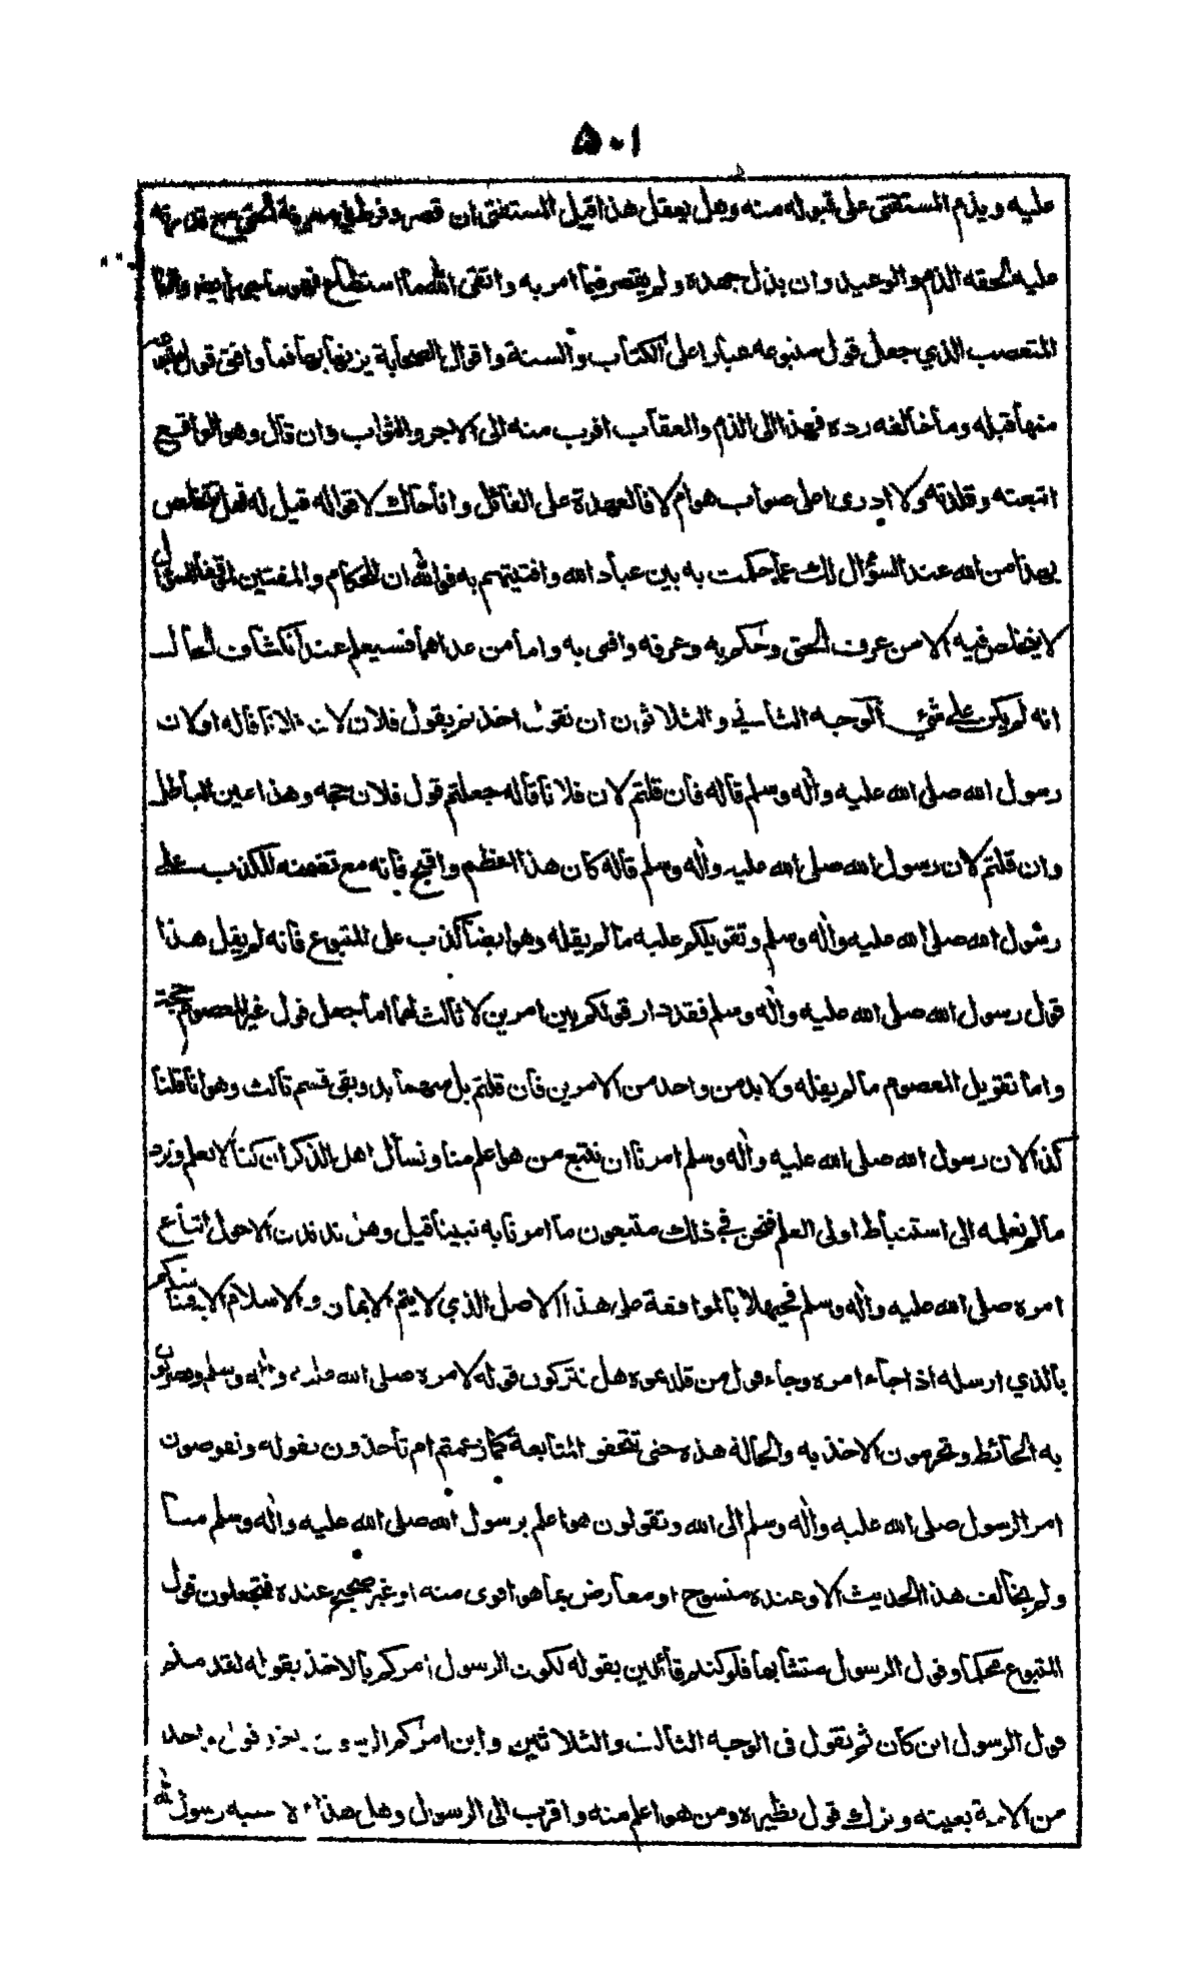 ٥٠١
عليه ويذم المستفتى على قبوله منه وهل يعقل هذا قيل المستفتى ان قصر وفرط في معرفة الحق مع قدرته
عليه لحقه الذم والوعيد وان بذل جهده ولم يقصر فيما امر به واتقى الله ما استطاع فهو ماجور ايضا واما
المتعصب الذي جعل قول متبوعه عيارا على الكتاب والسنة واقوال الصحابة يزنها بها فما وافق قول متبوعه
منها قبله وما خالفه رده فهذا الى الذم والعقاب اقرب منه الى الاجر والثواب وان قال وهو الواقع
اتبعته وقلدته ولا ادرى اعلى صواب هو ام لا فالعهدة على القائل وانا حاك لاقواله قيل له فهل تتخلص
بهذا من الله عند السؤال لك عما حكمت به بين عباد الله وافتيتهم به فوالله ان للحكام والمفتين لموقفا للسؤال
لا يتخلص فيه الا من عرف الحق وحكم به وعرفه وافتى به واما من عداهما فسيعلم عند انكشاف الحال
انه لم يكن على شيء الوجه الثاني والثلاثون ان نقول اخذتم بقول فلان لان فلانا قاله او لان
رسول الله صلى الله عليه واله وسلم قاله فان قلتم لان فلانا قاله جعلتم قول فلان حجه وهذا عين الباطل
وان قلتم لان رسول الله صلى الله عليه واله وسلم قاله كان هذا اعظم واقبح فانه مع تضمنه للكذب على
رسول الله صلى الله عليه واله وسلم وتقويلكم عليه ما لم يقله وهو ايضا كذب على المتبوع فانه لم يقل هذا
قول رسول الله صلى الله عليه واله وسلم فقد دار قولكم بين امرين لا ثالث لهما اما جعل قول غير المعصوم حجة
واما تقويل المعصوم ما لم يقله ولا بد من واحد من الامرين فان قلتم بل منهما بد وبقى قسم ثالث وهو انا قلنا
كذا لان رسول الله صلى الله عليه واله وسلم امرنا ان نتبع من هو اعلم منا ونسأل اهل الذكر ان كنا لا نعلم ونرد
ما لم نعلمه الى استنباط اولى العلم فنحن في ذلك متبعون ما امرنا به نبينا قيل وهل ندندن الا حول اتباع
امره صلى الله عليه واله وسلم فحيهلا بالموافقة على هذا الاصل الذي لا يتم الايمان والاسلام الا به فنناشدكم
بالذي ارسله اذا جاء امره وجاء قول من قلدتموه هل تتركون قوله لامره صلى الله عليه واله وسلم وتضربون
به الحائط وتحرمون الاخذ به والحالة هذه حتى تتحقق المتابعة كما زعمتم ام تأخذون بقوله وتفوضون
امر الرسول صلى الله عليه واله وسلم الى الله وتقولون هو اعلم برسول الله صلى الله عليه واله وسلم منا
ولم يخالف هذا الحديث الا وعنده منسوخ او معارض بما هو اقوى منه او غير صحيح عنده فتجعلون قول
المتبوع محكما وقول الرسول متشابها فلو كنتم قائلين بقوله لكون الرسول امركم بالاخذ بقوله لقدمتم
قول الرسول اين كان ثم نقول فى الوجه الثالث والثلاثين واين امركم الرسول باخذ قول واحد
من الامة بعينه وترك قول نظيره ومن هو اعلم منه واقرب الى الرسول وهل هذا الا نسبه رسول الله